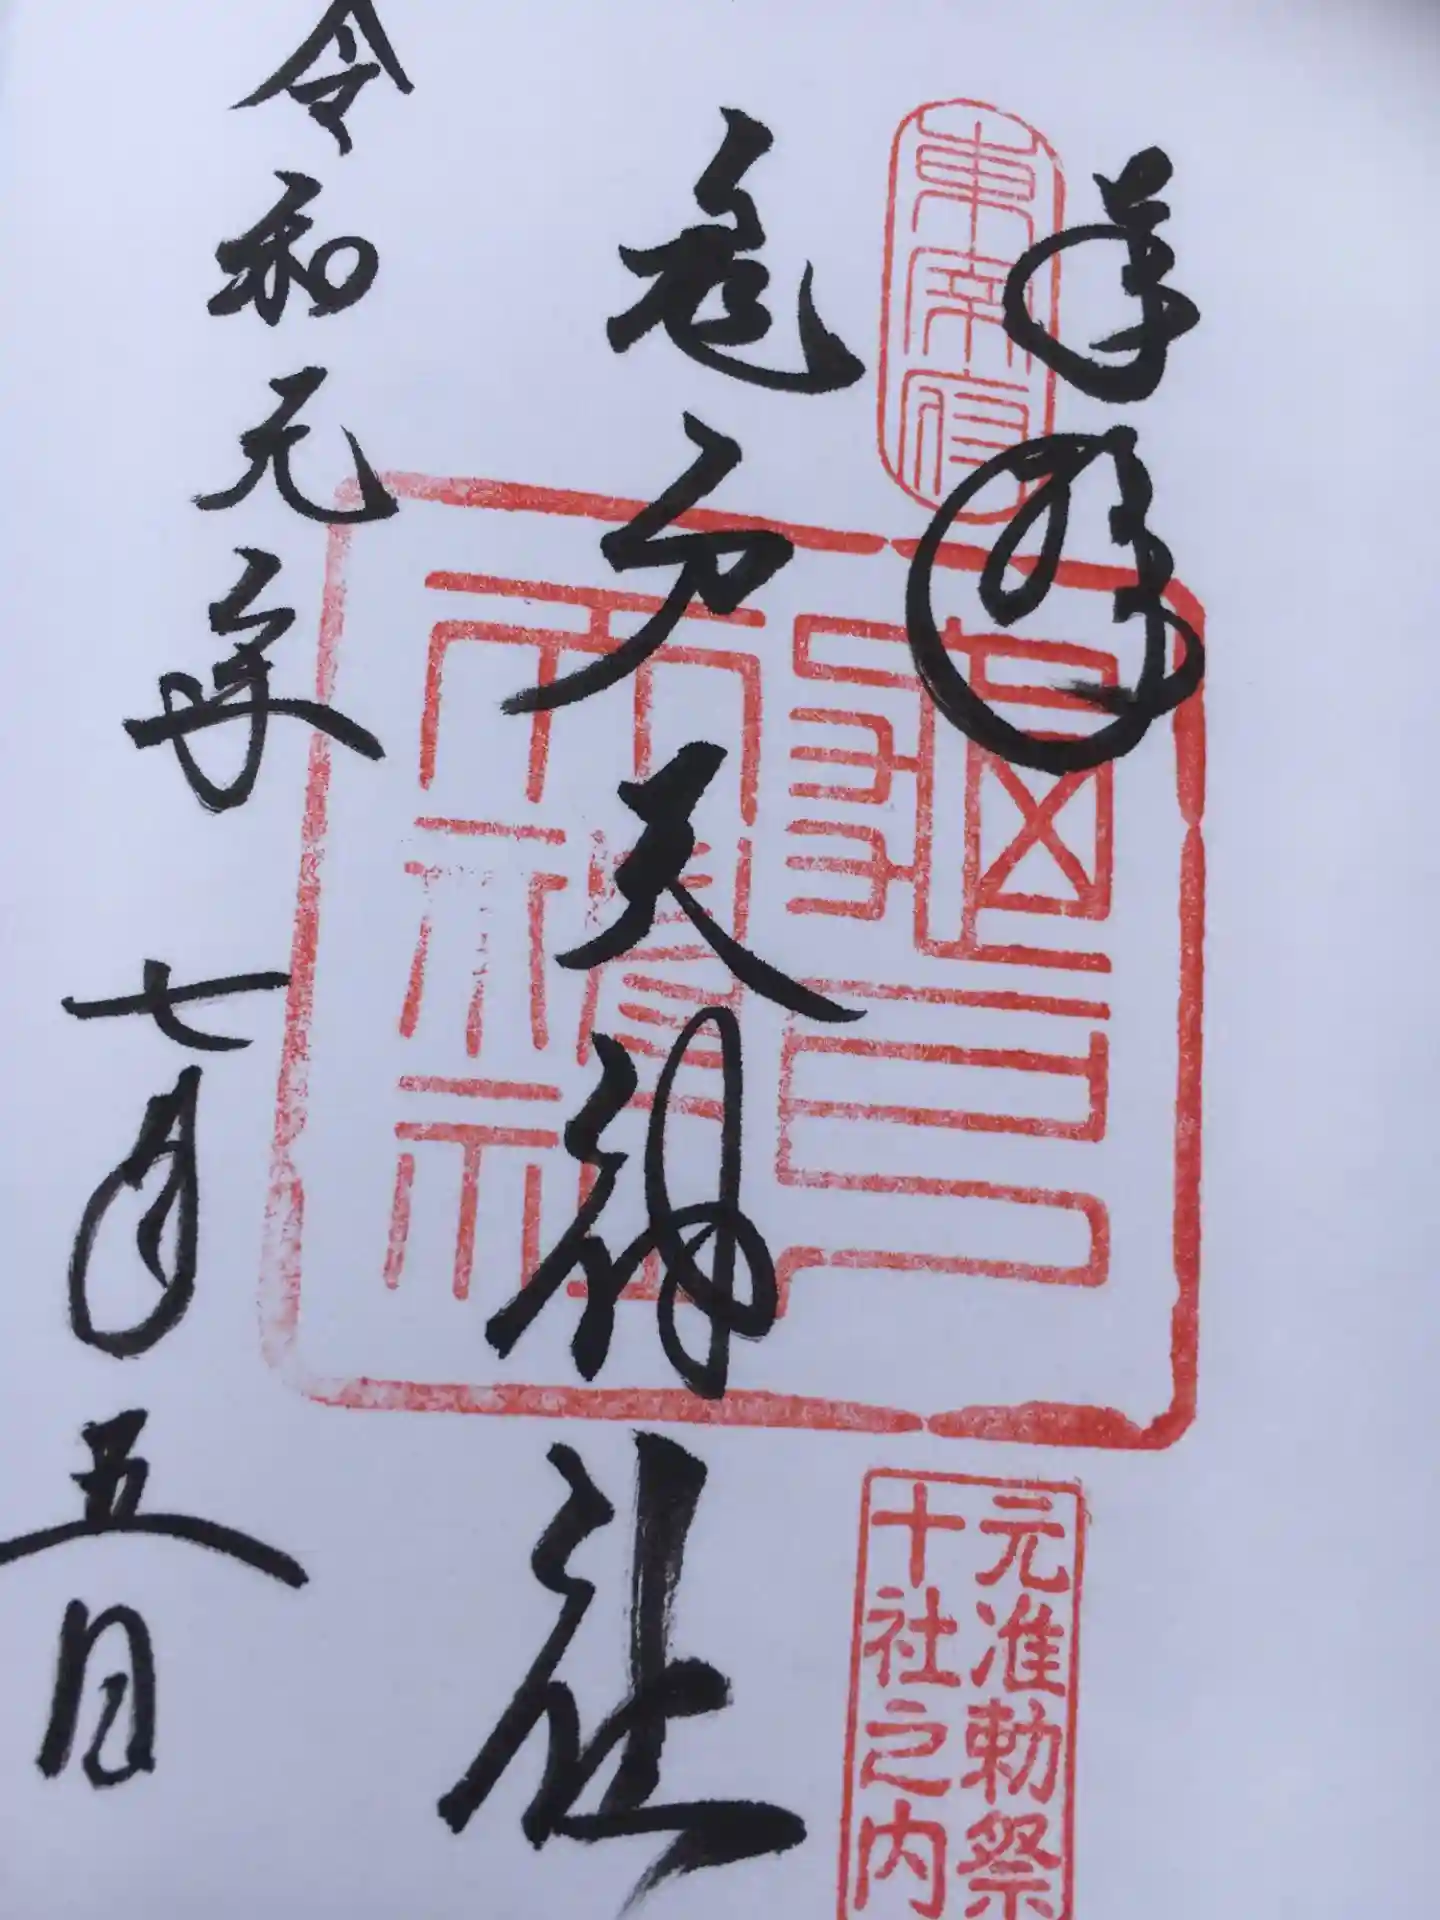 奉拝
東宰府
龜戸
天神社
元准勅祭
十社之内
亀戸天神社
令和元年七月五日